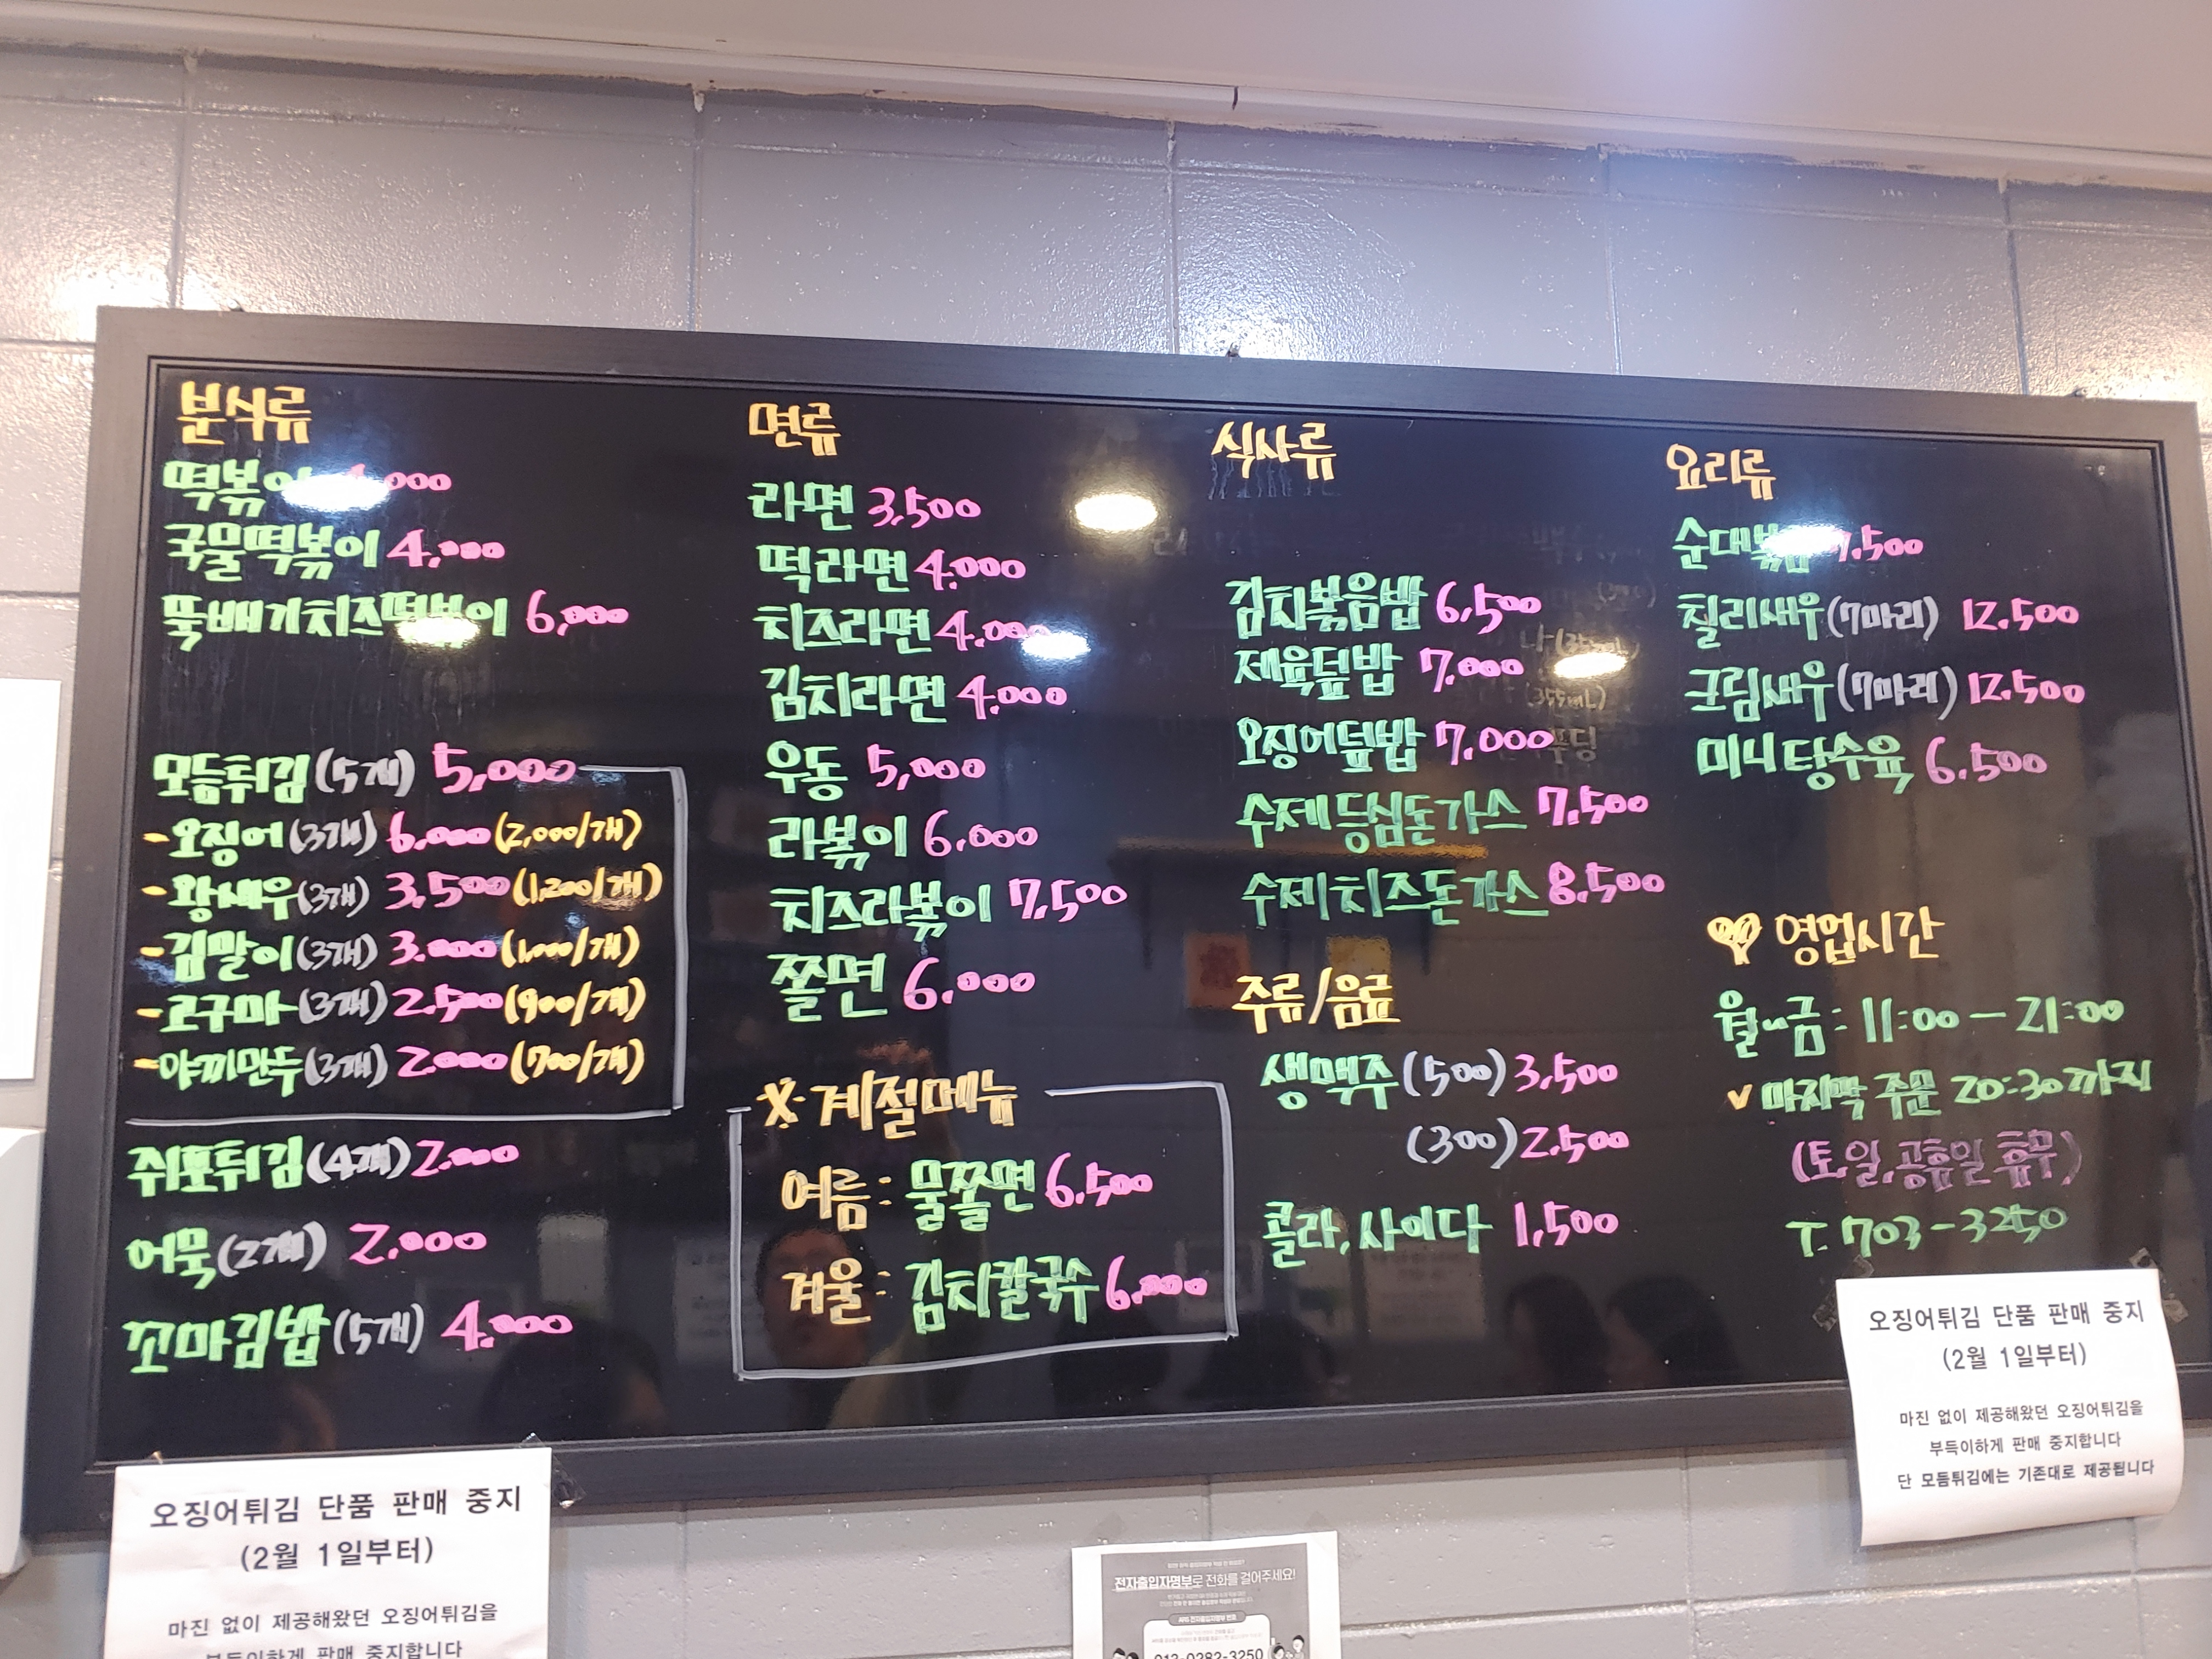 분식류
떡볶이 ,000
국물떡볶이 4,000
뚝배기치즈떡볶이 6,000
모듬튀김(5개) 5,000
-오징어(3개) 6,000(2,000/개)
-왕새우(3개) 3,500(1,200/개)
-김말이(3개) 3.000(1,000/개)
-고구마(3개) 2.500(900/개)
-야끼만두(3개) 2.000(700/개)
쥐포튀김(4개)2.000
어묵(2개) 2.000
꼬마김밥(5개) 4.000
면류
라면 3,500
떡라면 4.000
치즈라면 4.000
김치라면 4.000
우동 5,000
라볶이 6.000
치즈라볶이 7,500
쫄면 6.000
※계절메뉴
여름: 물쫄면 6,500
겨울: 김치칼국수 6,000
식사류
김치볶음밥 6,500
제육덮밥 7.000
오징어덮밥 7,000
수제등심돈가스 7,500
수제치즈돈가스 8,500
주류/음료
생맥주(500)3,500
(300)2.500
콜라, 사이다 1,500
요리류
순대볶음 7.500
칠리새우(7마리) 12.500
크림새우(7마리) 12.500
미니탕수육 6.500
영업시간
월~금: 11:00-21:00
v 마지막 주문 20:30까지
(토,일,공휴일 휴무)
T. 703-3250
오징어튀김 단품 판매 중지
(2월 1일부터)
마진 없이 제공해왔던 오징어튀김을
부득이하게 판매 중지합니다
단 모듬튀김에는 기존대로 제공됩니다
오징어튀김 단품 판매 중지
(2월 1일부터)
마진 없이 제공해왔던 오징어튀김을
부득이하게 판매 중지합니다
전자출입자명부로 전화를 걸어주세요!
013-0282-3250